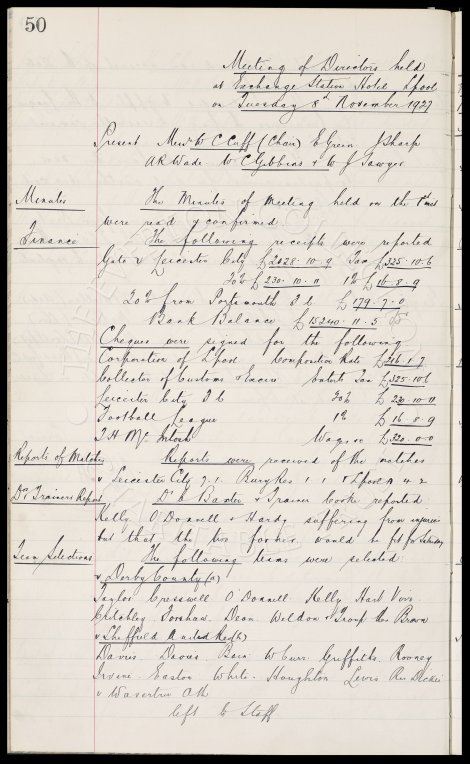 50
Meeting of Directors held
at Exchange Station Hotel Lpool
on Tuesday 8th November 1927
Present Messrs W C Cuff (Chair) E Green J Sharp
A R Wade W C Gibbins & W J Sawyer
Minutes The Minutes of Meeting held on the 1st inst
were read & confirmed
Finance The following receipts were reported
Gate v Leicester City £2028.10.9 Tax £325.10.6
20% £230.10.11 1% £16.8.9
20% from Portsmouth F C £179.7.0
Bank Balance £15240.11.5
Cheques were signed for the following
Corporation of Lpool Composition Rate £316.1.7
Collector of Customs & Excise Enterts Tax £325.10.6
Leicester City F C 20% £230.10.11
Football League 1% £16.8.9
T H McIntosh Wages £320.0.0
Reports of Matches Reports were received of the matches
v Leicester City 7.1. Bury Res 1.1 Lpool A 4.2
Drs Trainers Report Dr Baxter & Trainer Cooke reported
Kelly O'Donnell & Hardy suffering from injuries
but that the two former would be fit for Saturday
Team Selections The following teams were selected
v Derby County (a)
Taylor Cresswell O'Donnell Kelly Hart Virr
Critchley Forshaw Dean Weldon & Troup Res Brown
v Sheffield United Res (h)
Davies Bain Curr Griffiths Rooney
Irvine Easton White Houghton Lewis Res Dickie
v Wavertree Ath
left to Staff